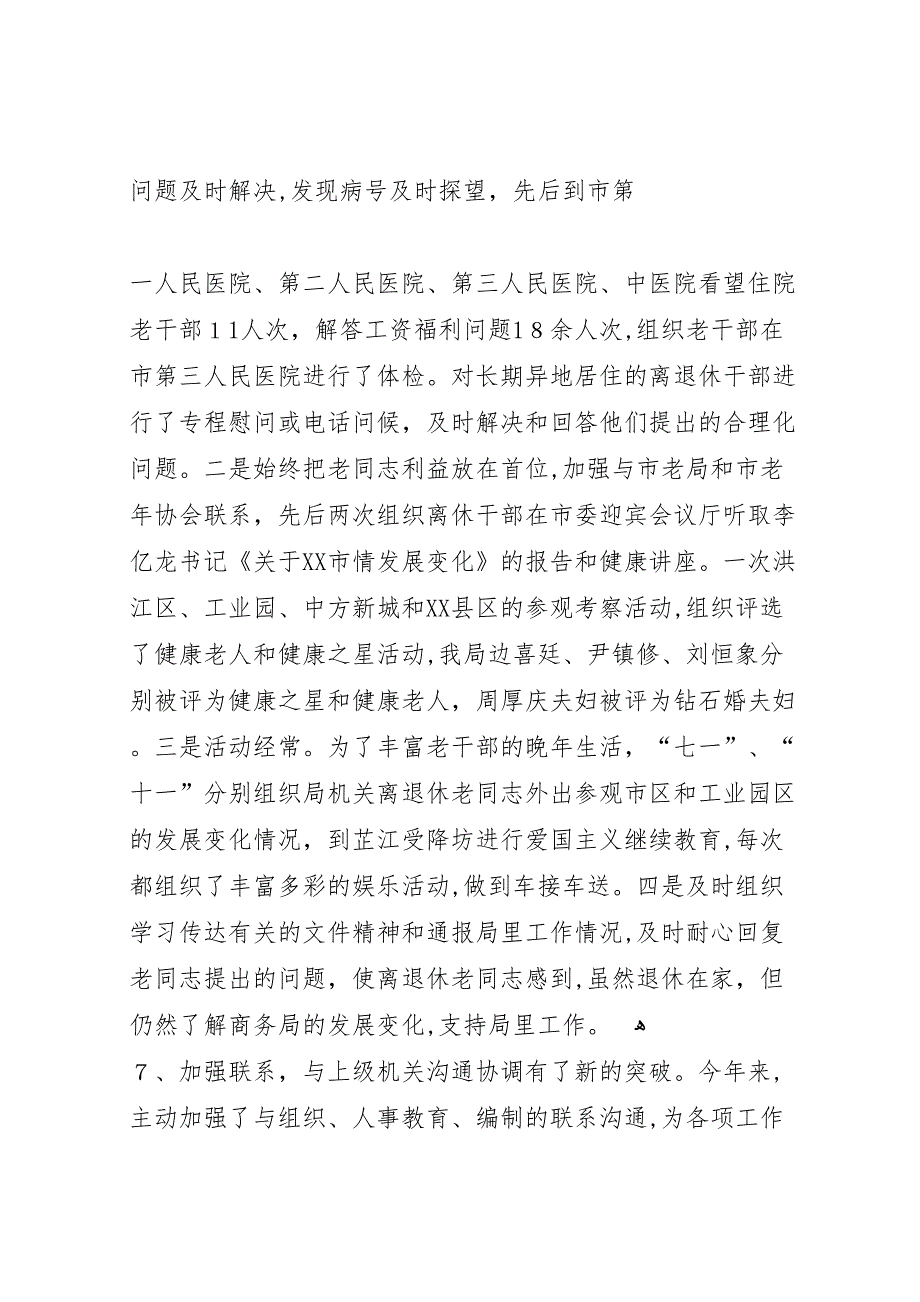 问题及时解决,发现病号及时探望，先后到市第
一人民医院、第二人民医院、第三人民医院、中医院看望住院
老干部１1人次，解答工资福利问题1８余人次,组织老干部在
市第三人民医院进行了体检。对长期异地居住的离退休干部进
行了专程慰问或电话问候，及时解决和回答他们提出的合理化
问题。二是始终把老同志利益放在首位,加强与市老局和市老
年协会联系，先后两次组织离休干部在市委迎宾会议厅听取李
亿龙书记《关于XX市情发展变化》的报告和健康讲座。一次洪
江区、工业园、中方新城和XX县区的参观考察活动,组织评选
了健康老人和健康之星活动,我局边喜廷、尹镇修、刘恒象分
别被评为健康之星和健康老人，周厚庆夫妇被评为钻石婚夫妇
。三是活动经常。为了丰富老干部的晚年生活，“七一”、“
十一”分别组织局机关离退休老同志外出参观市区和工业园区
的发展变化情况，到芷江受降坊进行爱国主义继续教育,每次
都组织了丰富多彩的娱乐活动,做到车接车送。四是及时组织
学习传达有关的文件精神和通报局里工作情况,及时耐心回复
老同志提出的问题，使离退休老同志感到,虽然退休在家，但
仍然了解商务局的发展变化,支持局里工作。 ﻫ
７、加强联系，与上级机关沟通协调有了新的突破。今年来,
主动加强了与组织、人事教育、编制的联系沟通,为各项工作